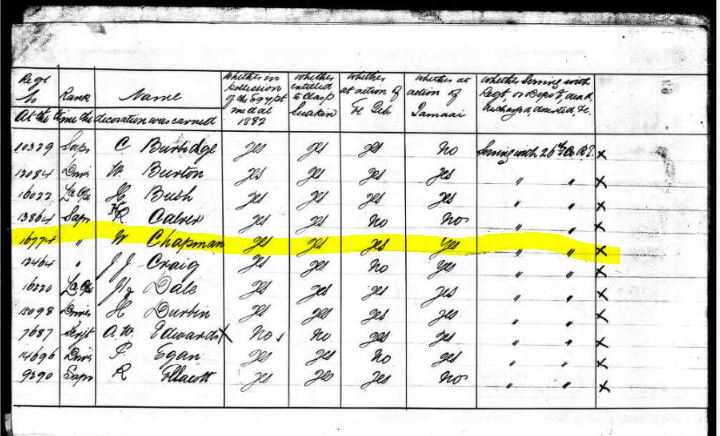 Regl No Rank Name Whether in possession of the Egypt medal 1882 Whether entitled to Clasp Suakin Whether at action of El Teb Whether at action of Tamaai Whether serving with Regt or Depot, dead, discharged, deserted, &c.
At the time the decoration was earned
10329 Sapr C Burbidge Yes Yes Yes No Serving with 26th Co R.E. X
Driv W. Burton Yes Yes Yes Yes " " X
16022 H Bush Yes Yes Yes Yes " " X
13864 Sapr H R Calver Yes Yes No No " " X
16774 " W Chapman Yes Yes Yes Yes " " X
12464 " J J Craig Yes Yes No Yes " " X
16220 J Dale Yes Yes Yes Yes " " X
15098 Driv H Durbin Yes Yes Yes Yes " " X
7687 Serjt A.W. Edwards X No No Yes Yes " " X
14696 Driv P Egan Yes Yes No Yes " " X
9390 Sapr R Ellacott Yes Yes Yes No " " X